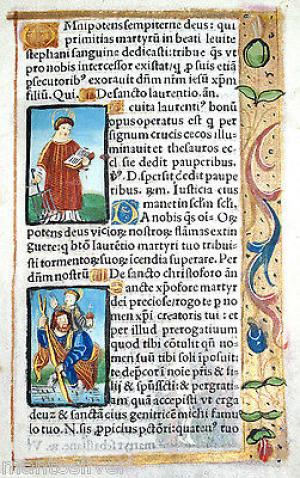 Mnipotens sempiterne deus: qui
primitias martyrū in beati leuite
stephani sanguine dedicasti: tribue q̄s vt
pro nobis intercessor existat/ q̨ p suis etiā
psecutorib⁹ exorauit dn̄m nr̄m iesū xp̄m
filiū. Qui. De sancto laurentio. ān.
cuita laurenti⁹ bonū
opus operatus est q̨ per
signum crucis cecos illu-
minauit et thesauros ec
cl̄ie dedit pauperibus.
℣. Dispersit dedit paupe
ribus. ℟. Justicia eius
manet in sclm̄ scl̄i.
A nobis q̄s oī
potens deus vicioꝝ nostroꝝ flāmas extin
guere: q̨ btō laurētio martyri tuo tribui-
sti tormentoꝝ suoꝝ icendia superare. Per
dn̄m nostrū De sancto christoforo ān
Sancte xp̄ofore martyr
dei preciose: rogo te p no
men xp̄i creatoris tui: et
per illud prerogatiuum
quod tibi cōtulit qn̄ no-
men suū tibi soli īposuit: te
depcor ī noīe pr̄is & fi
lij & spūsscti: & p gratiā-
tiam quā accepisti vt erga
deuz & sanctā eius genitricē michi famu
lo tuo. N. sis p̄picius pctōri: quaten⁹ tuo
mantosilver